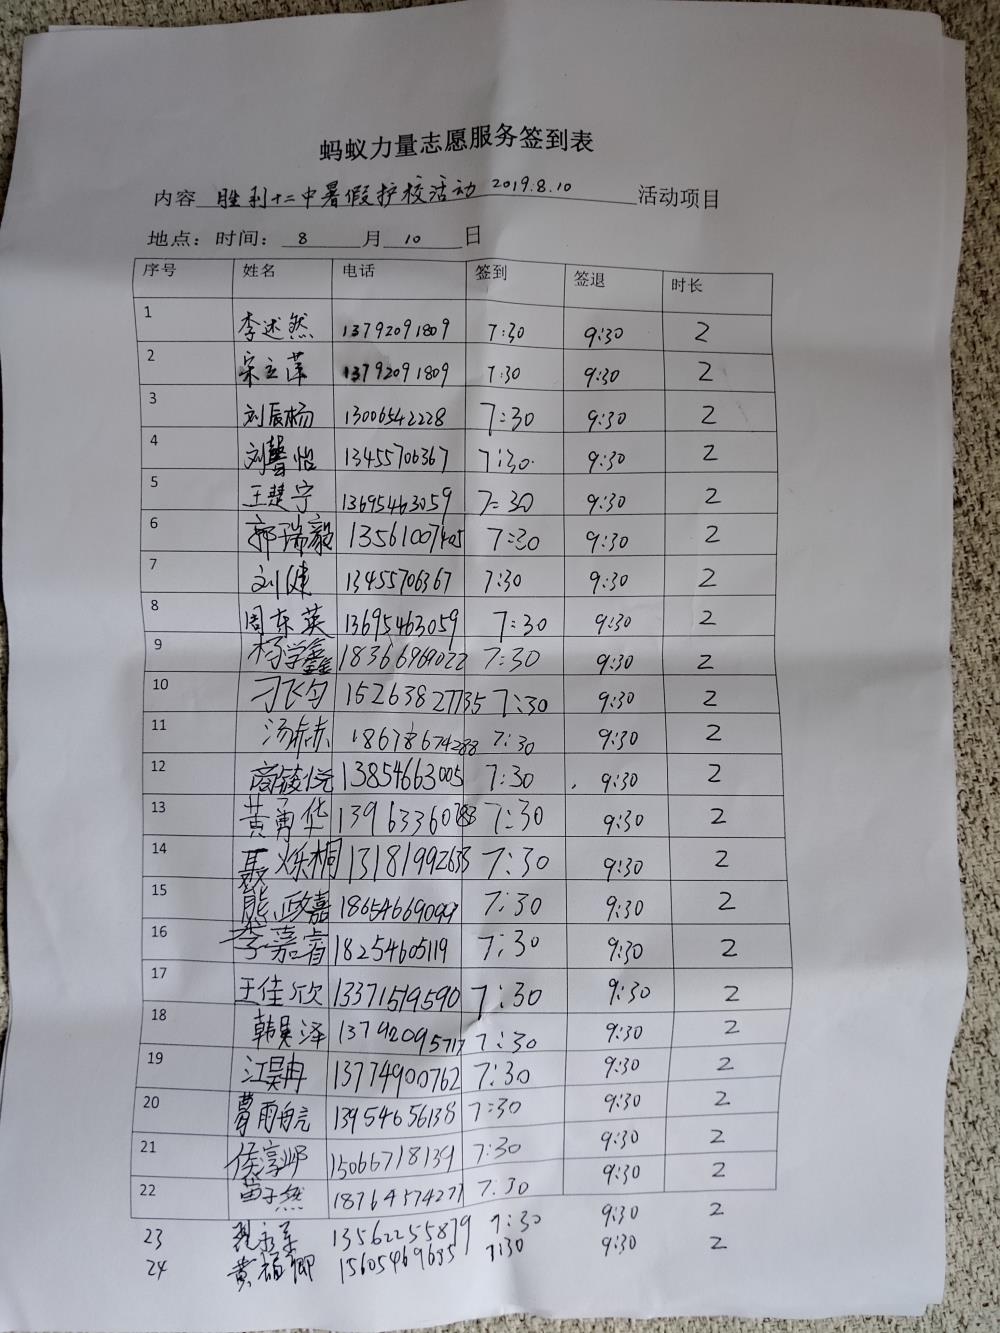 蚂蚁力量志愿服务签到表
内容 胜利十二中暑假护校活动 2019.8.10 活动项目
地点：时间： 8 月 10 日
序号 姓名 电话 签到 签退 时长
1 李述然 13792091809 7:30 9:30 2
2 宋立萍 13792091809 7:30 9:30 2
3 刘辰杨 13006542228 7:30 9:30 2
4 刘馨怡 13455706367 7:30 9:30 2
5 王楚宁 13695463059 7:30 9:30 2
6 郭瑞毅 13561007405 7:30 9:30 2
7 刘健 13455706367 7:30 9:30 2
8 周东英 13695463059 7:30 9:30 2
9 杨学鑫 18366969022 7:30 9:30 2
10 刁飞匀 15263827735 7:30 9:30 2
11 汤赫赫 18678674288 7:30 9:30 2
12 商毓悦 13854663005 7:30 9:30 2
13 黄勇华 13963360788 7:30 9:30 2
14 聂烁桐 13181992638 7:30 9:30 2
15 熊政嘉 18654669099 7:30 9:30 2
16 李嘉睿 18254605119 7:30 9:30 2
17 王佳欣 13371519590 7:30 9:30 2
18 韩昊泽 13792095717 7:30 9:30 2
19 江昊冉 13774900762 7:30 9:30 2
20 曹雨航 13954656138 7:30 9:30 2
21 侯淳邺 15066718139 7:30 9:30 2
22 苗子然 18764574277 7:30 9:30 2
23 13562255879 7:30 9:30 2
24 黄福卿 15605469685 7:30 9:30 2